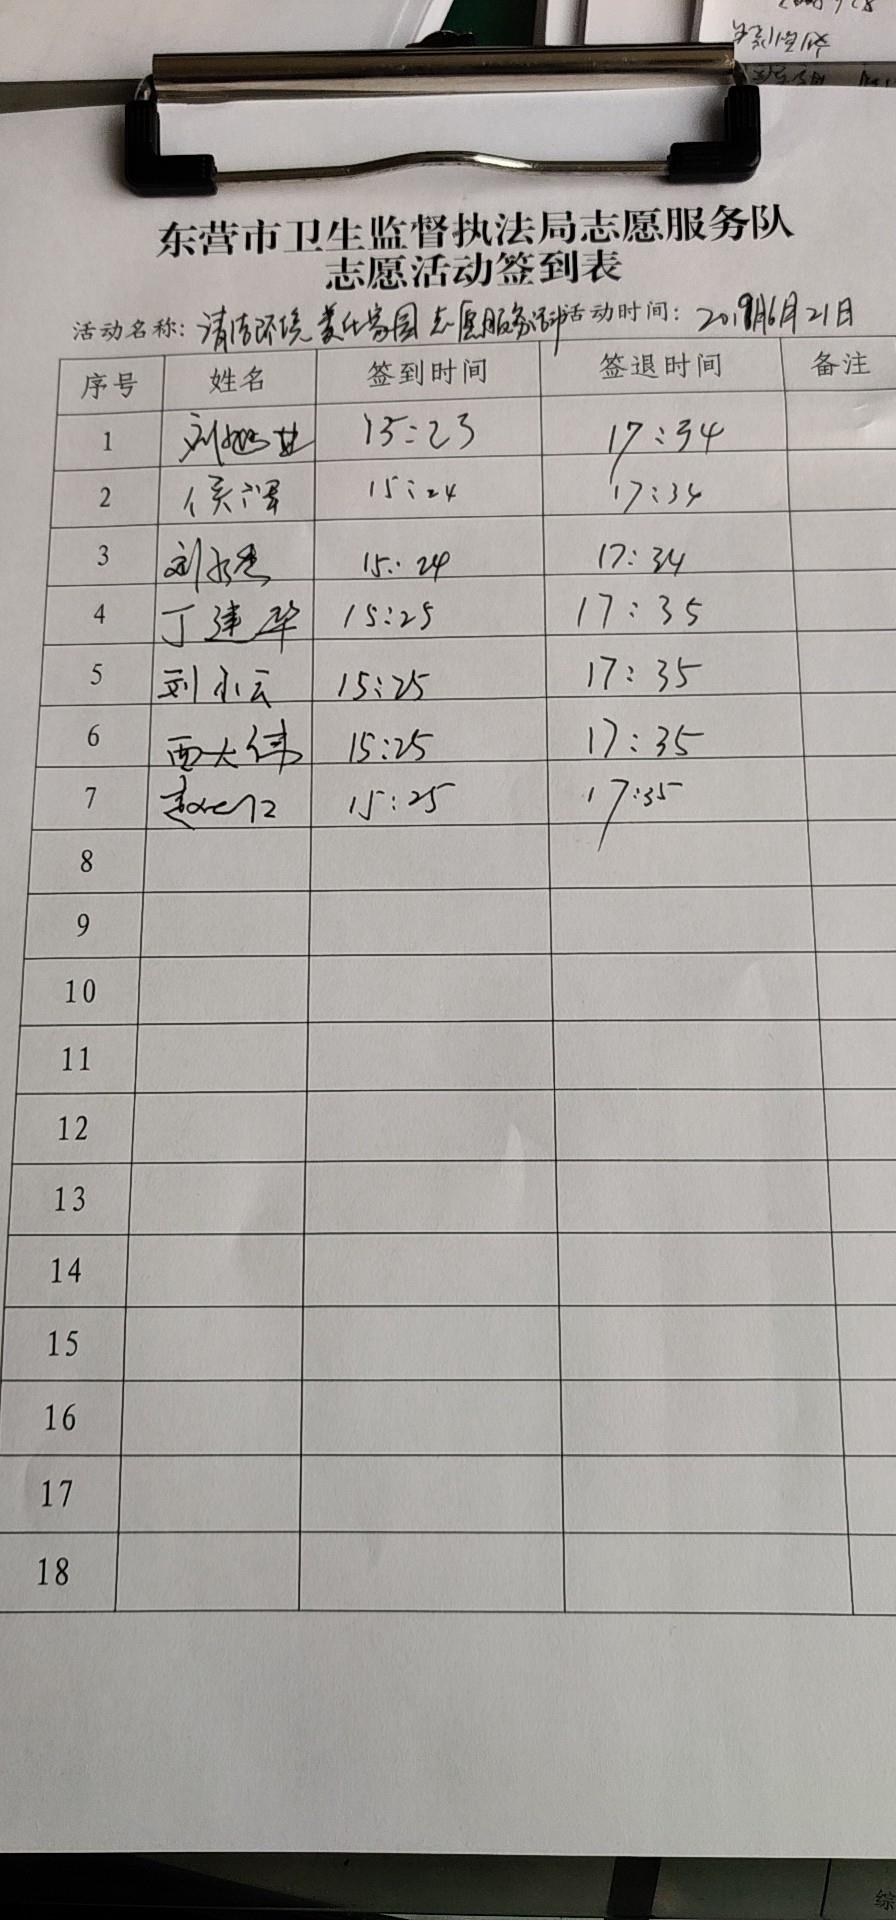 东营市卫生监督执法局志愿服务队
志愿活动签到表
活动名称：清洁环境 美化家园 志愿服务活动 活动时间：2019年6月21日
序号 姓名 签到时间 签退时间 备注
1 15:23 17:34
2 15:24 17:34
3 15:24 17:34
4 丁建华 15:25 17:35
5 刘小云 15:25 17:35
6 西大伟 15:25 17:35
7 15:25 17:35
8
9
10
11
12
13
14
15
16
17
18
综